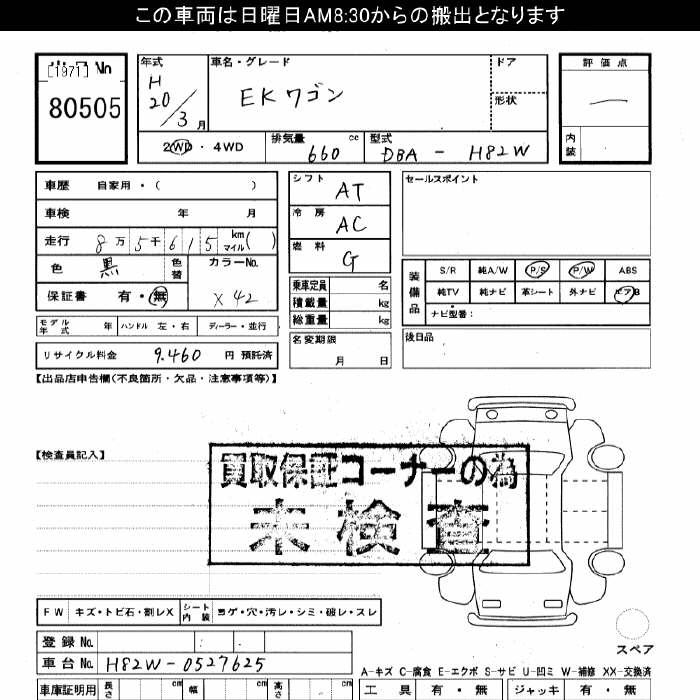 この車両は日曜日AM8:30からの搬出となります
[1971]
80505
年式
H
20/3 月
車名・グレード
EKワゴン
ドア
形状
評価点
内装
2WD・4WD
排気量 660 cc
型式 DBA - H82W
車歴 自家用・( )
車検 年 月
走行 8万5千615 km マイル( )
色 黒 色替
カラーNo. X42
保証書 有・無
モデル年式 年 ハンドル 左・右 ディーラー・並行
リサイクル料金 9.460 円 預託済
シフト AT
冷房 AC
燃料 G
乗車定員 名
積載量 kg
総重量 kg
名変期限 月 日
セールスポイント
装備品
S/R 純A/W P/S P/W ABS
純TV 純ナビ 革シート 外ナビ エアB
ナビ型番:
後日品
【出品店申告欄(不良箇所・欠品・注意事項等)】
【検査員記入】
買取保証コーナーの為
未検査
FW キズ・トビ石・割レX
シート内装 ヨゲ・穴・汚レ・シミ・破レ・スレ
登録No.
車台No. H82W-0527625
スペア
A-キズ C-腐食 E-エクボ S-サビ U-凹ミ W-補修 XX-交換済
車庫証明用 長さ cm 幅 cm 高さ cm
工具 有・無 ジャッキ 有・無